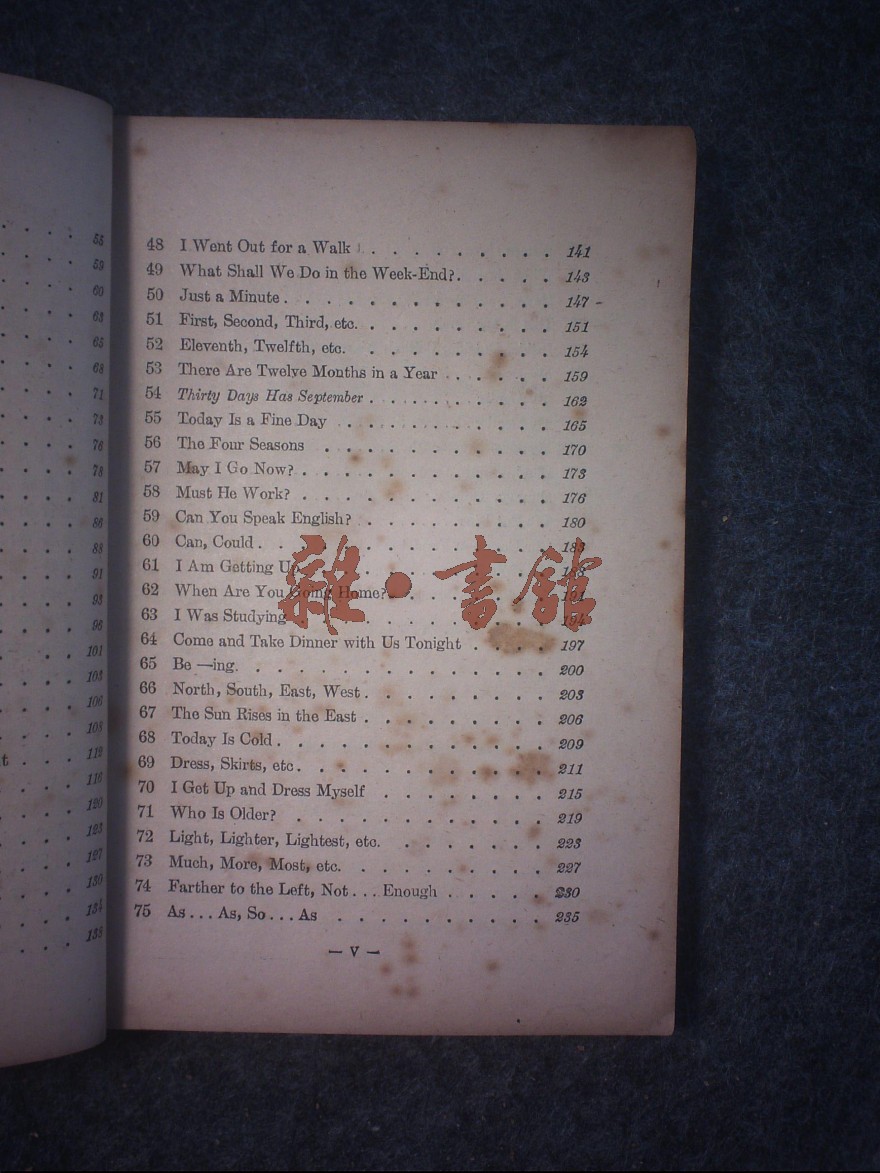 55
59
60
63
65
68
71
73
76
78
81
86
88
91
93
96
101
103
106
108
t . . . 112
116
120
123
127
130
134
138
48 I Went Out for a Walk . . . . . . . . . 141
49 What Shall We Do in the Week-End? . . . . . 143
50 Just a Minute . . . . . . . . . . . . 147
51 First, Second, Third, etc. . . . . . . . . . 151
52 Eleventh, Twelfth, etc. . . . . . . . . . 154
53 There Are Twelve Months in a Year . . . . . 159
54 Thirty Days Has September . . . . . . . . . 162
55 Today Is a Fine Day . . . . . . . . . . 165
56 The Four Seasons . . . . . . . . . . 170
57 May I Go Now? . . . . . . . . . . . 173
58 Must He Work? . . . . . . . . . . . 176
59 Can You Speak English? . . . . . . . . . 180
60 Can, Could . . . . . . . . . . . . . 183
61 I Am Getting Up . . . . . . . . . .
62 When Are You Going Home? . . . . . . 191
63 I Was Studying . . . . . . . . . . 194
64 Come and Take Dinner with Us Tonight . . . . 197
65 Be —ing. . . . . . . . . . . . . . 200
66 North, South, East, West . . . . . . . . . 203
67 The Sun Rises in the East . . . . . . . . . 206
68 Today Is Cold . . . . . . . . . . . . 209
69 Dress, Skirts, etc. . . . . . . . . . . . 211
70 I Get Up and Dress Myself . . . . . . . . 215
71 Who Is Older? . . . . . . . . . . . 219
72 Light, Lighter, Lightest, etc. . . . . . . . 223
73 Much, More, Most, etc. . . . . . . . . . 227
74 Farther to the Left, Not . . . Enough . . . . . 230
75 As . . . As, So . . . As . . . . . . . . . 235
— V —
雜·書館